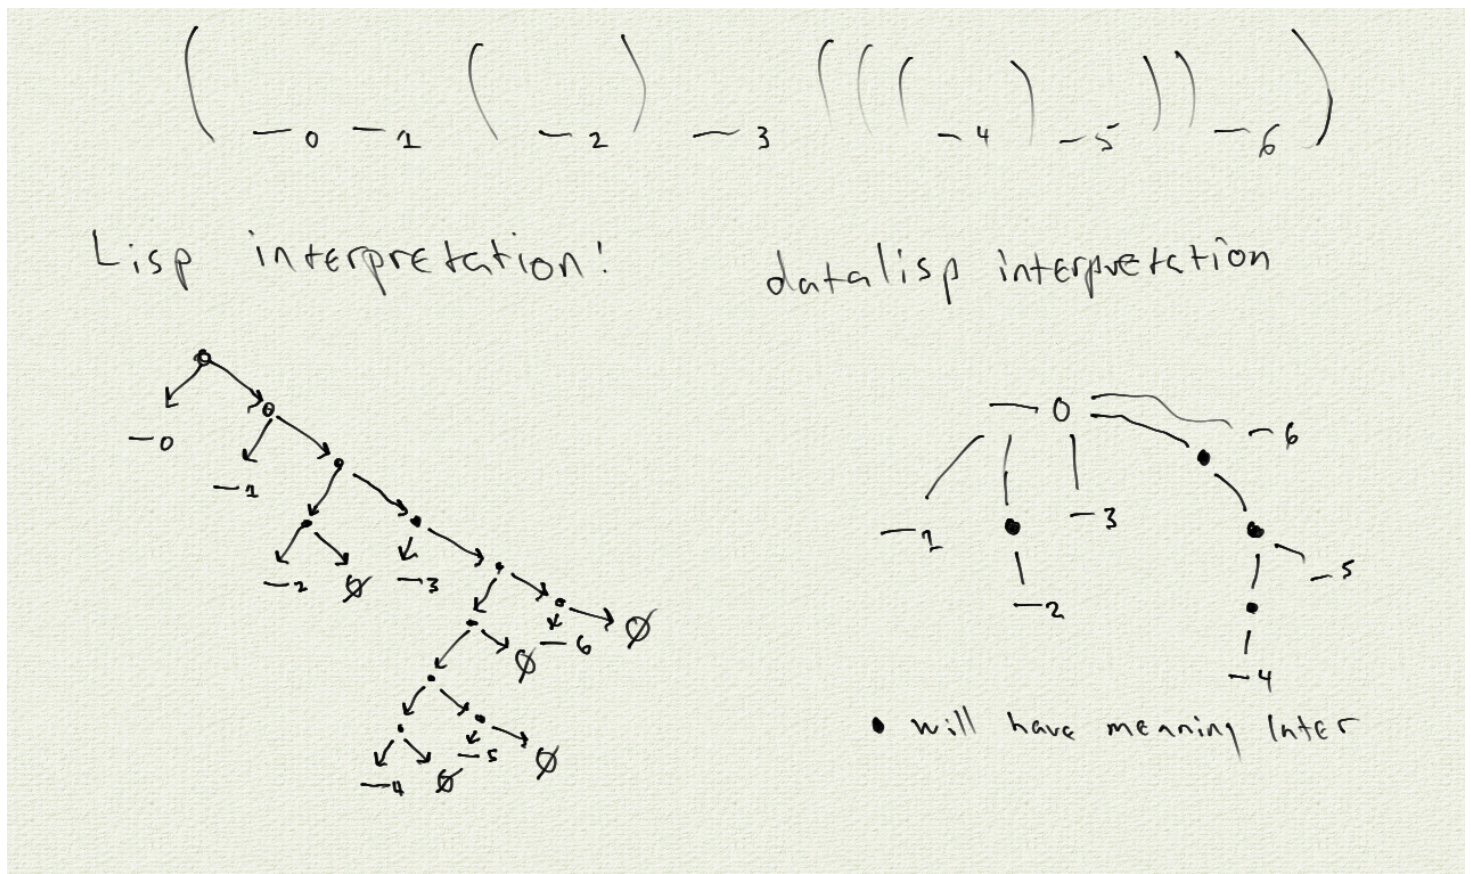 ( _0 _1 ( _2 ) _3 ( ( ( _4 ) _5 ) ) _6 )
Lisp interpretation:
datalisp interpretation
_0
_1
_2 ∅ _3
_6 ∅
∅
_4 ∅ _5 ∅
_0
_6
_1
_3
_5
_2
_4
• will have meaning later